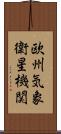 欧州気象
衛星機関